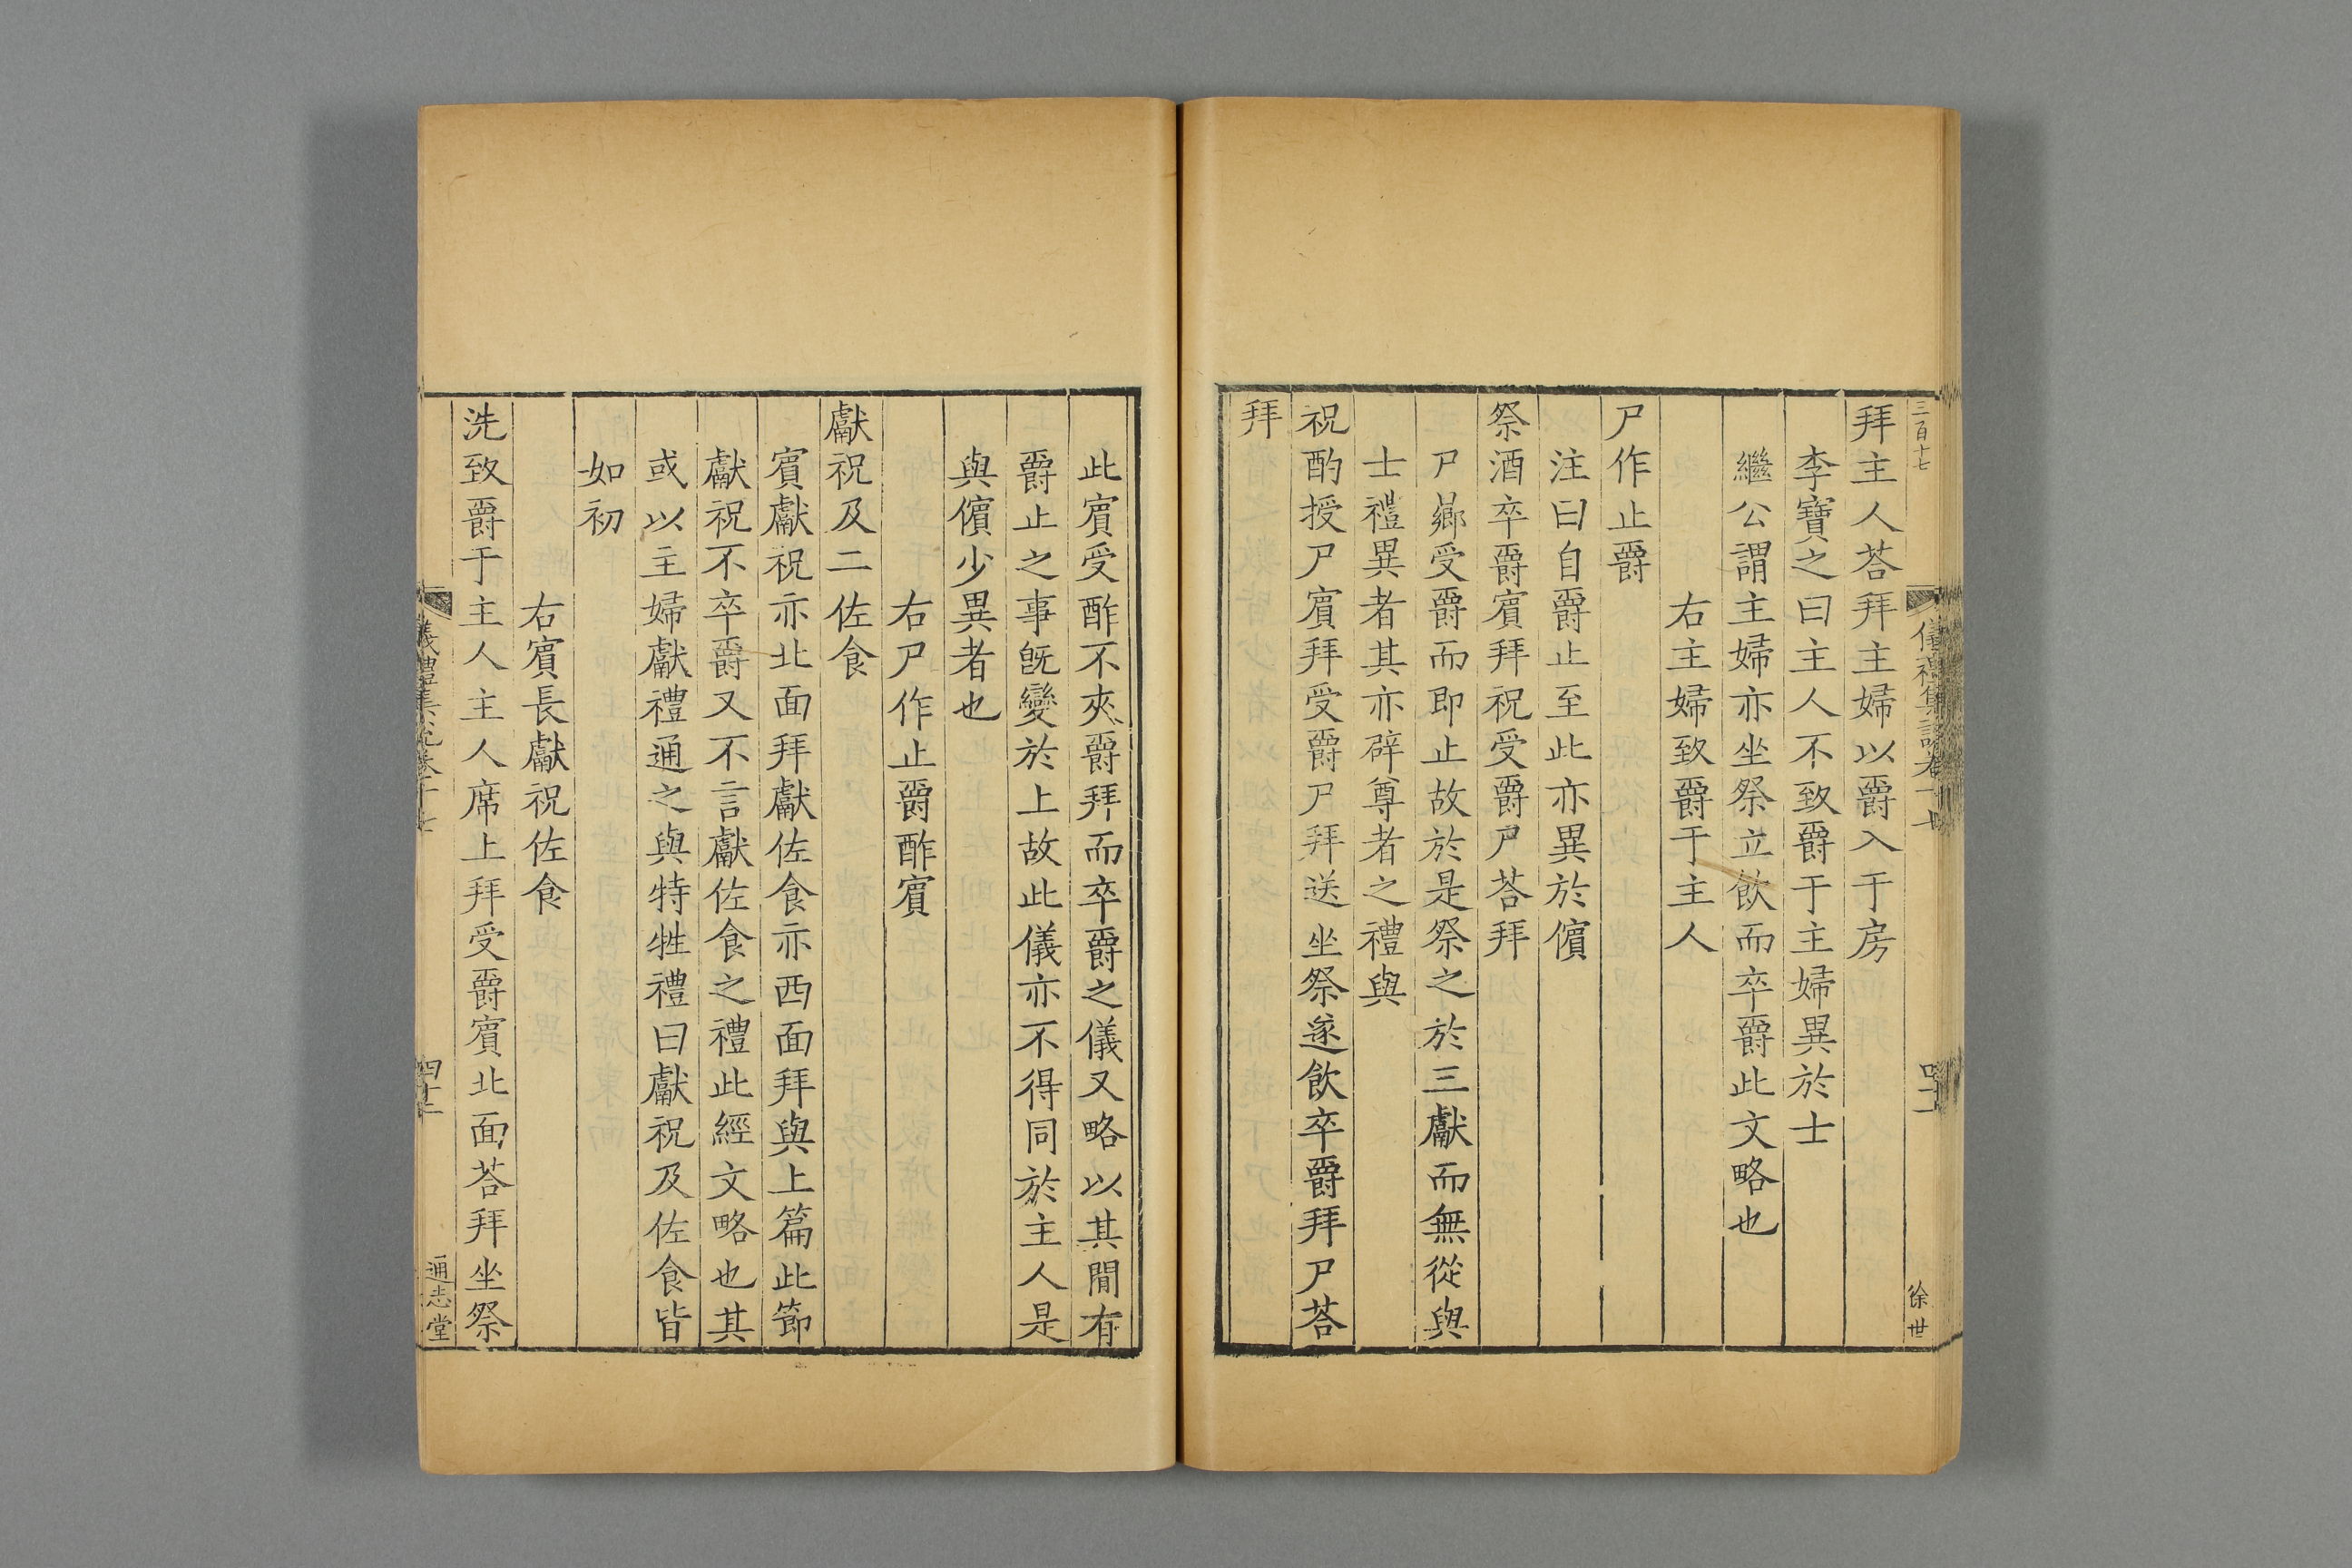 三百十七
儀禮集說卷十七
徐世
拜主人荅拜主婦以爵入于房
李寶之曰主人不致爵于主婦異於士
繼公謂主婦亦坐祭立飲而卒爵此文略也
右主婦致爵于主人
尸作止爵
注曰自爵止至此亦異於儐
祭酒卒爵賔拜祝受爵尸荅拜
尸鄉受爵而即止故於是祭之於三獻而無從與
士禮異者其亦辟尊者之禮與
祝酌授尸賔拜受爵尸拜送坐祭遂飲卒爵拜尸荅
拜
此賔受酢不夾爵拜而卒爵之儀又略以其閒有
爵止之事旣變於上故此儀亦不得同於主人是
與儐少異者也
右尸作止爵酢賔
獻祝及二佐食
賔獻祝亦北面拜獻佐食亦西面拜與上篇此節
獻祝不卒爵又不言獻佐食之禮此經文略也其
或以主婦獻禮通之與特牲禮曰獻祝及佐食皆
如初
右賔長獻祝佐食
洗致爵于主人主人席上拜受爵賔北面荅拜坐祭
儀禮集說卷十七
四十二
通志堂